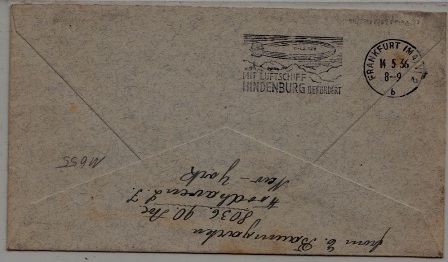 MIT LUFTSCHIFF
HINDENBURG BEFÖRDERT
FRANKFURT (MAIN)
14.5.36
8-9
b
from E. Baumgarten
8036. 90 Ave
Woodhaven L. I.
New-York